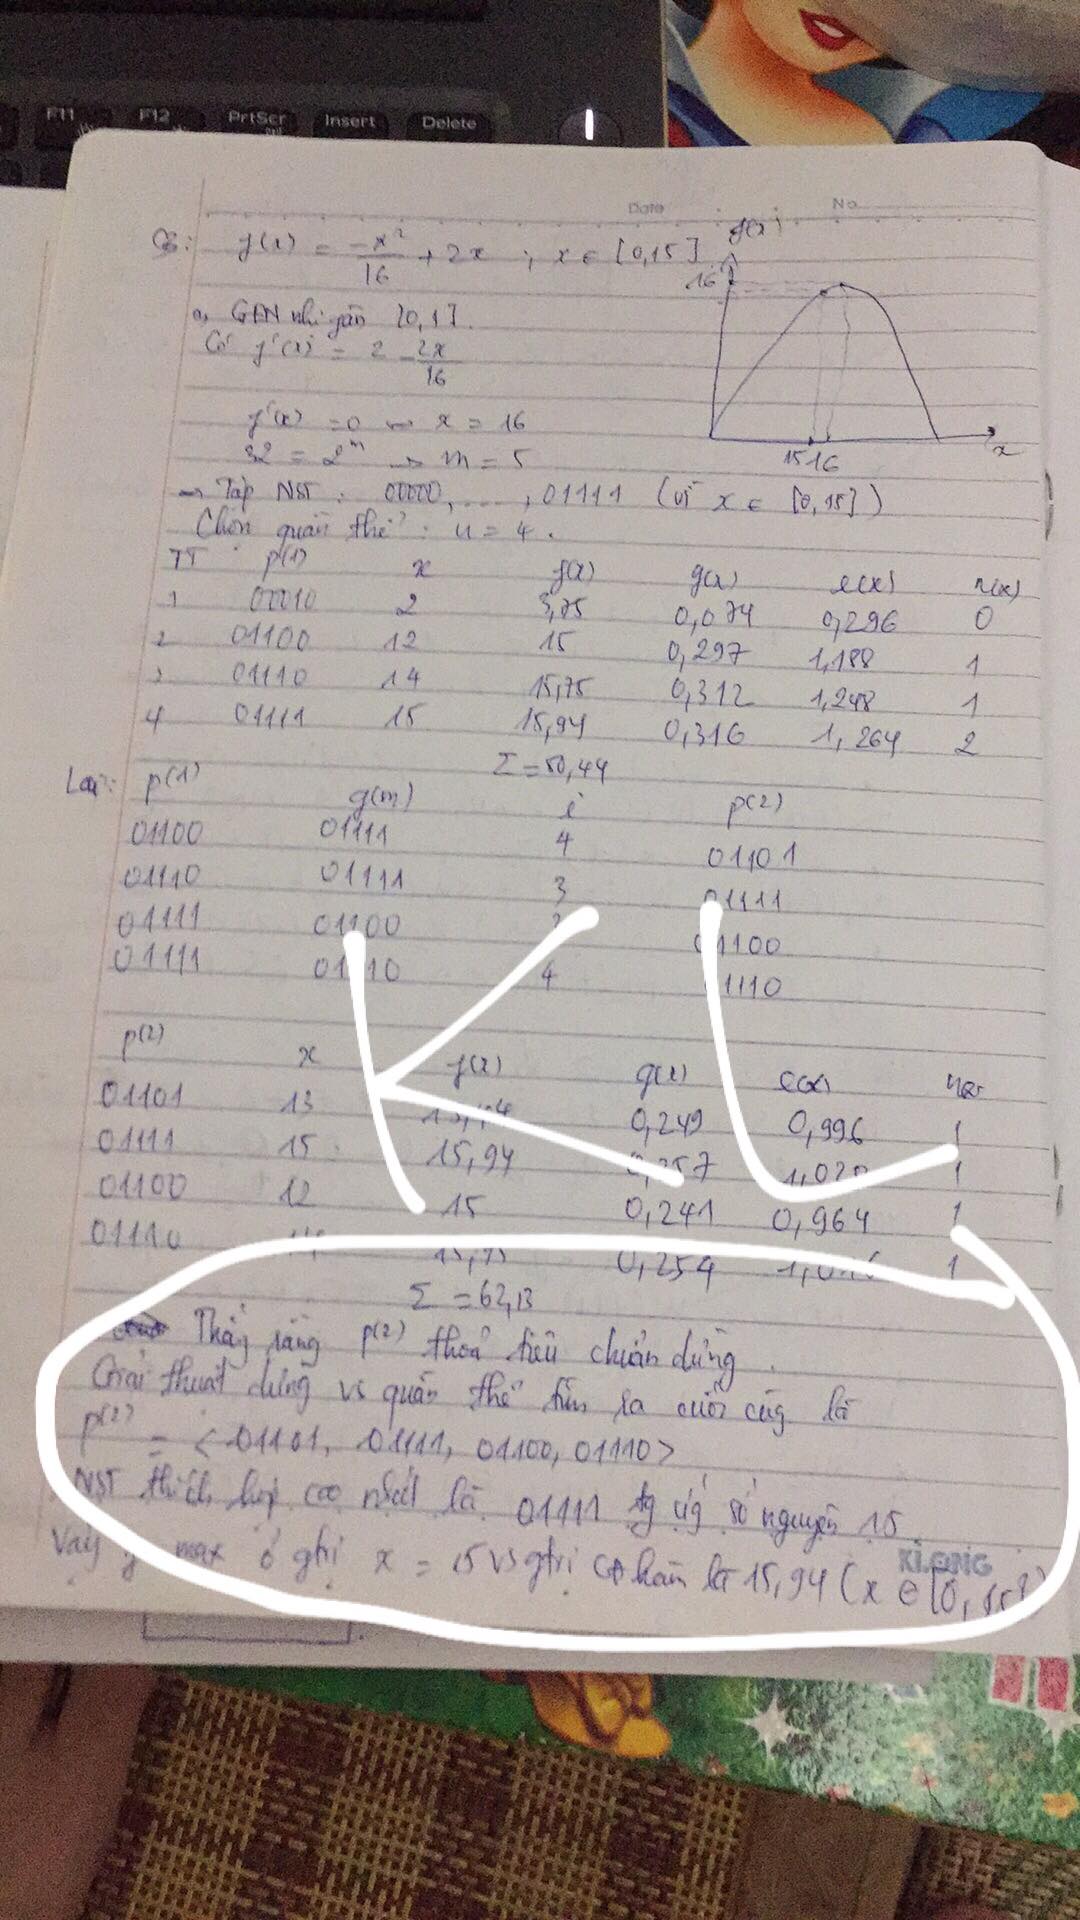 F11 F12 PrtScr Insert Delete
Date No
f(x) = -x²/16 + 2x ; x ∈ [0,15]
f(x)
16
15 16
x
a, GEN nhị phân [0,1].
Có f'(x) = 2 - 2x/16
f'(x) = 0 x = 16
32 = 2^m → m = 5
→ Tập NST : 00000, ...., 01111 (vì x ∈ [0,15])
Chọn quần thể : n = 4.
TT p(1) x f(x) g(x) e(x) n(x)
1 00010 2 3,75 0,074 0,296 0
2 01100 12 15 0,297 1,188 1
3 01110 14 15,75 0,312 1,248 1
4 01111 15 15,94 0,316 1,264 2
Σ = 50,44
Lai: p(1) g(m) i p(2)
01100 01111 4 01101
01110 01111 3 01111
01111 01100 01100
01111 01110 4 1110
KL
p(2) x f(x) g(x) e(x)
01101 13 0,249 0,996 1
01111 15 15,94 0,257 1
01100 12 15 0,241 0,964 1
01110 0,254 1
Σ = 62,13
Thấy rằng p(2) thoả tiêu chuẩn dừng.
Giải thuật dừng vs quần thể tìm ra cuối cùg là
p(2) = <01101, 01111, 01100, 01110>
NST thích hợp cao nhất là 01111 tg ứg số nguyên 15
Vậy max ở gtrị x = 15 vs gtrị hàm là 15,94 (x ∈ [0,15])
KLONG